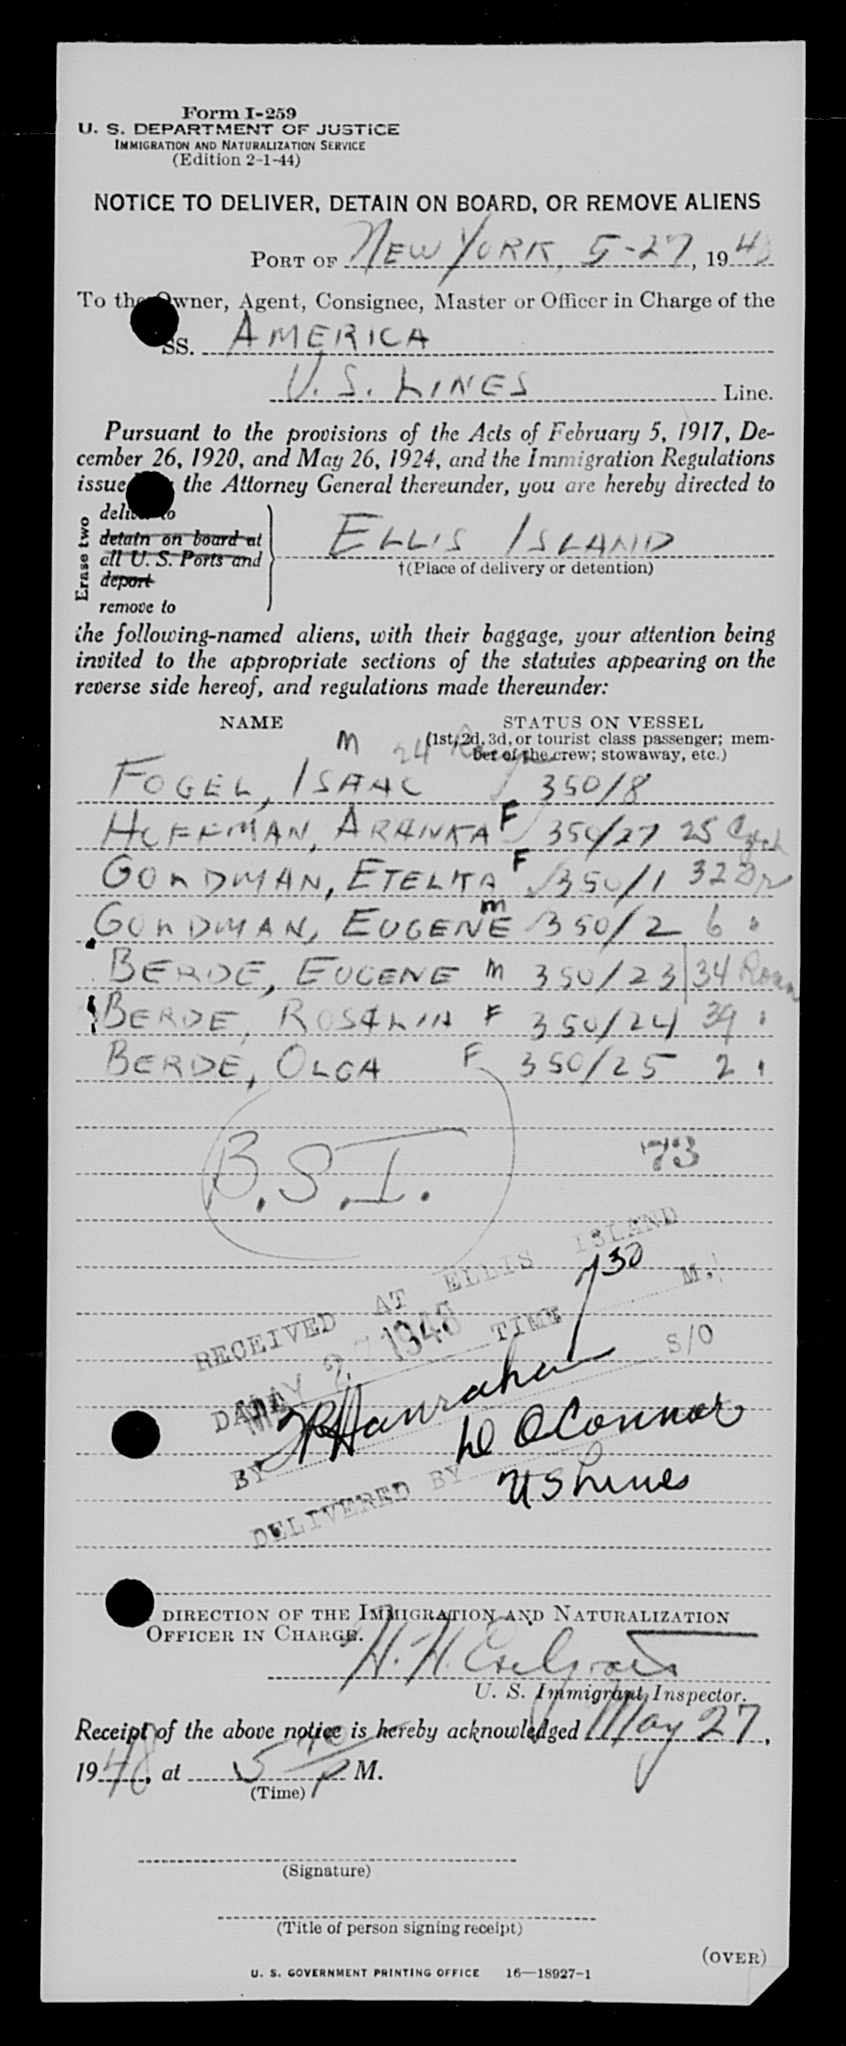 Form I-259
U. S. DEPARTMENT OF JUSTICE
IMMIGRATION AND NATURALIZATION SERVICE
(Edition 2-1-44)
NOTICE TO DELIVER, DETAIN ON BOARD, OR REMOVE ALIENS
PORT OF NEW YORK, 5-27, 1948
To the Owner, Agent, Consignee, Master or Officer in Charge of the
SS. AMERICA
U.S. LINES Line.
Pursuant to the provisions of the Acts of February 5, 1917, De-
cember 26, 1920, and May 26, 1924, and the Immigration Regulations
issue the Attorney General thereunder, you are hereby directed to
Erase two
deliver to
detain on board at
all U. S. Ports and
deport
remove to
ELLIS ISLAND
†(Place of delivery or detention)
the following-named aliens, with their baggage, your attention being
invited to the appropriate sections of the statutes appearing on the
reverse side hereof, and regulations made thereunder:
NAME STATUS ON VESSEL
(1st, 2d, 3d, or tourist class passenger; mem-
ber of the crew; stowaway, etc.)
M 24
FOGEL, ISAAC 350/8
HOFFMAN, ARANKA F 350/27 25 Czech
GOLDMAN, ETELKA F 350/1 32
GOLDMAN, EUGENE M 350/2 6 "
BERDE, EUGENE M 350/23 34 Roum
BERDE, ROSALIA F 350/24 39 "
BERDE, OLGA F 350/25 2 "
B.S.I. 73
RECEIVED AT ELLIS ISLAND
DATE MAY 27 1948 TIME 7 30 M.
BY Hanrahan S/O
DELIVERED BY O'Connor
U S Lines
DIRECTION OF THE IMMIGRATION AND NATURALIZATION
OFFICER IN CHARGE.
H. H.
U. S. Immigrant Inspector.
Receipt of the above notice is hereby acknowledged May 27,
1948, at 5 P M.
(Time)
(Signature)
(Title of person signing receipt)
(OVER)
U. S. GOVERNMENT PRINTING OFFICE 16—18927-1